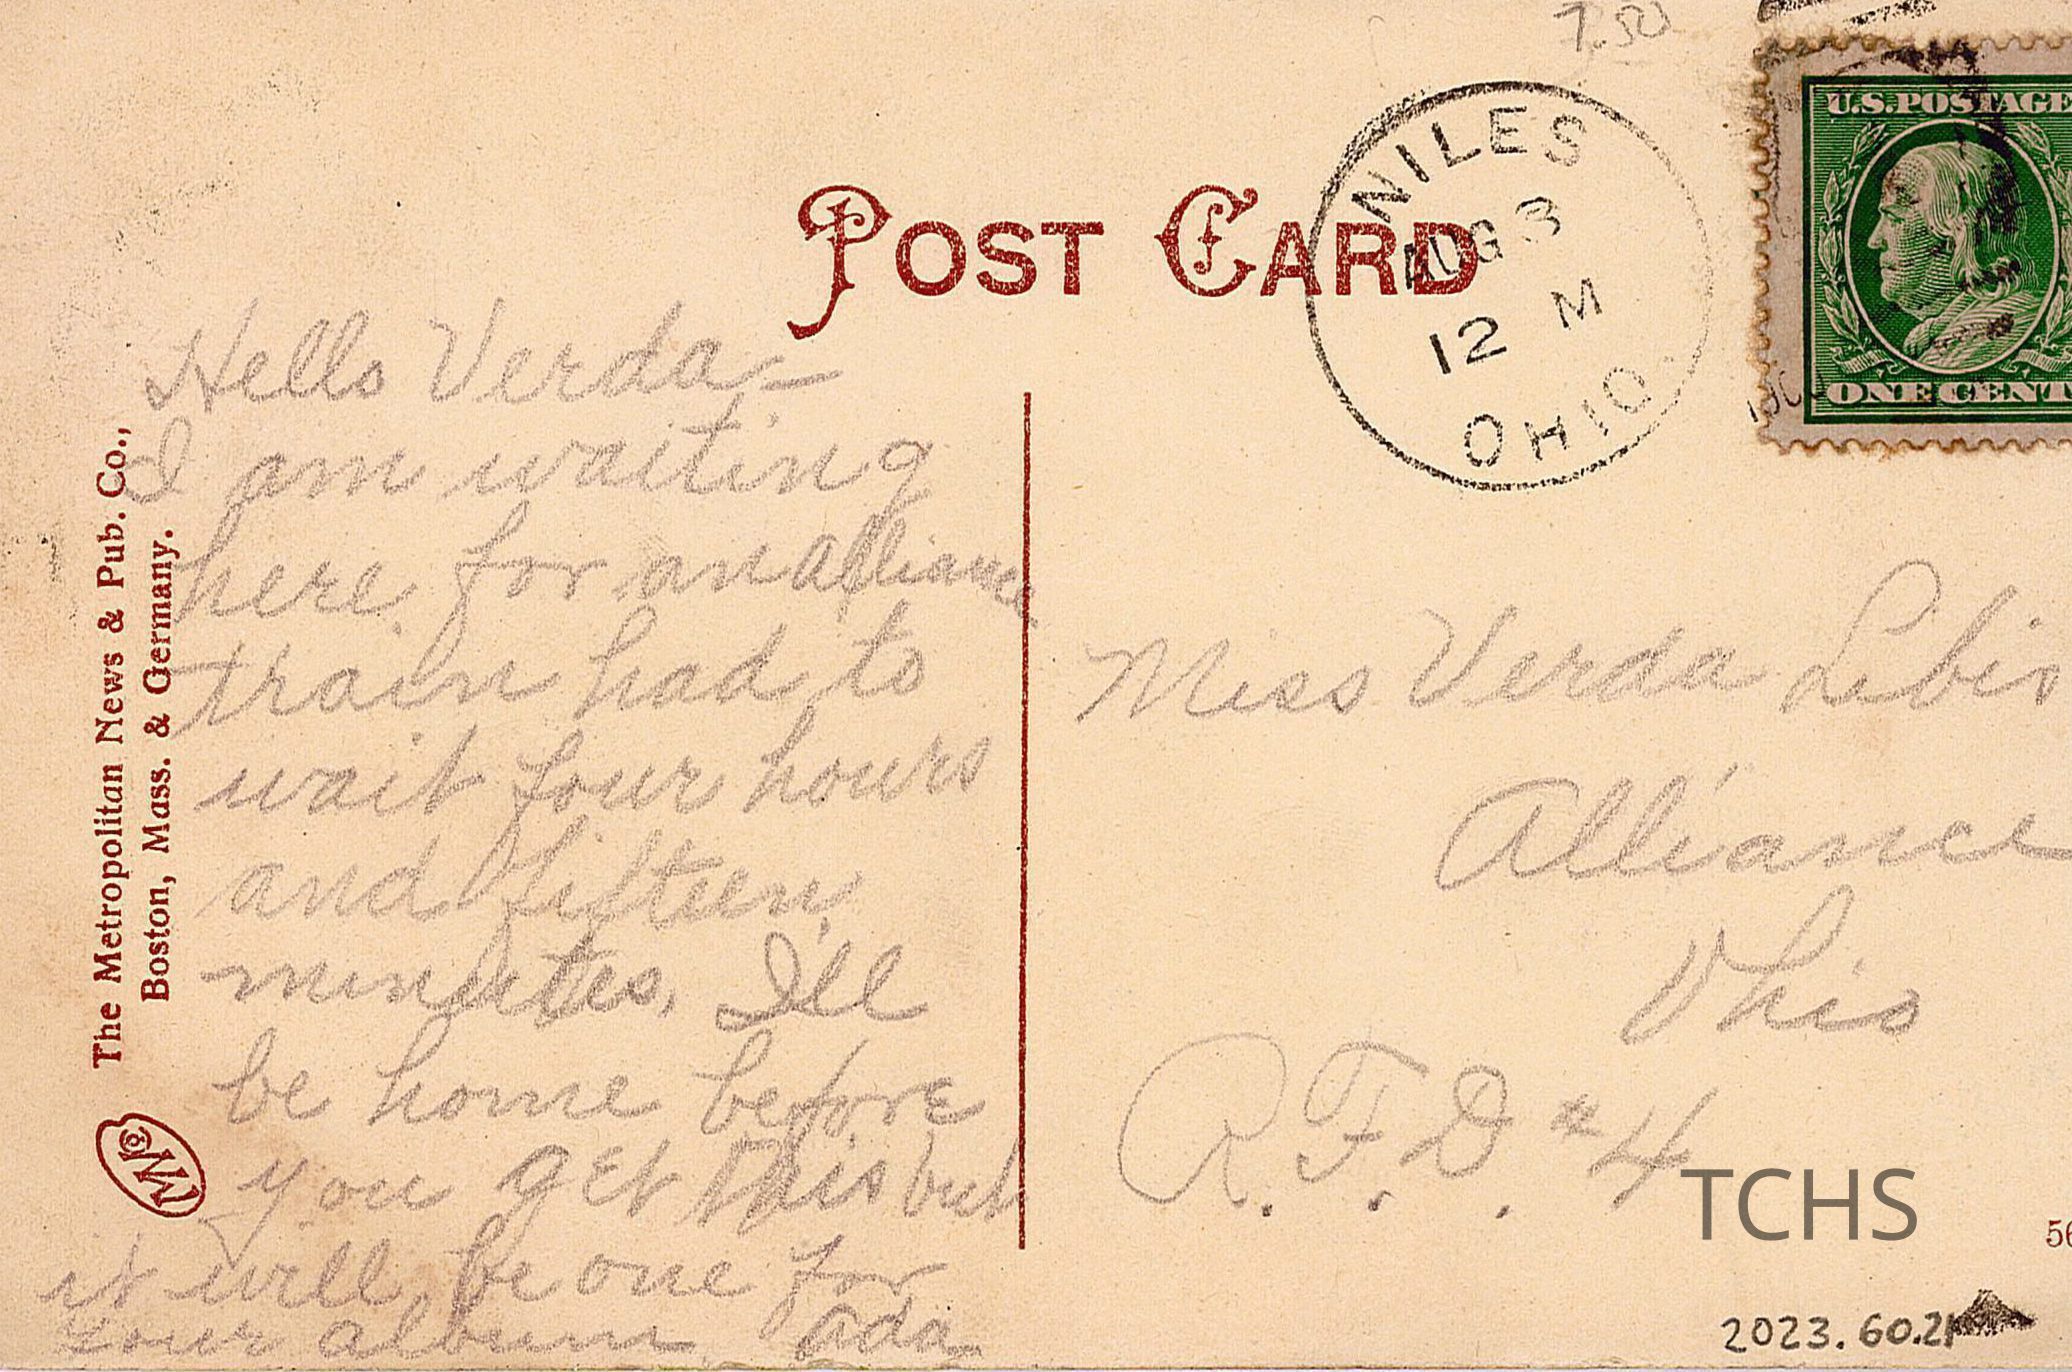 7.50
U.S.POSTAGE
ONE CENT
NILES
AUG 3
12 M
OHIO.
POST CARD
Hello Verda –
I am waiting
here for an Alliance
train had to
wait four hours
and fifteen
minutes, I'll
be home before
you get this but
it will be one for
your album. Ada
Miss Verda Libis
Alliance
Ohio
R.F.D. #4
The Metropolitan News & Pub. Co.,
Boston, Mass. & Germany.
MN Co
TCHS
56
2023.60.21